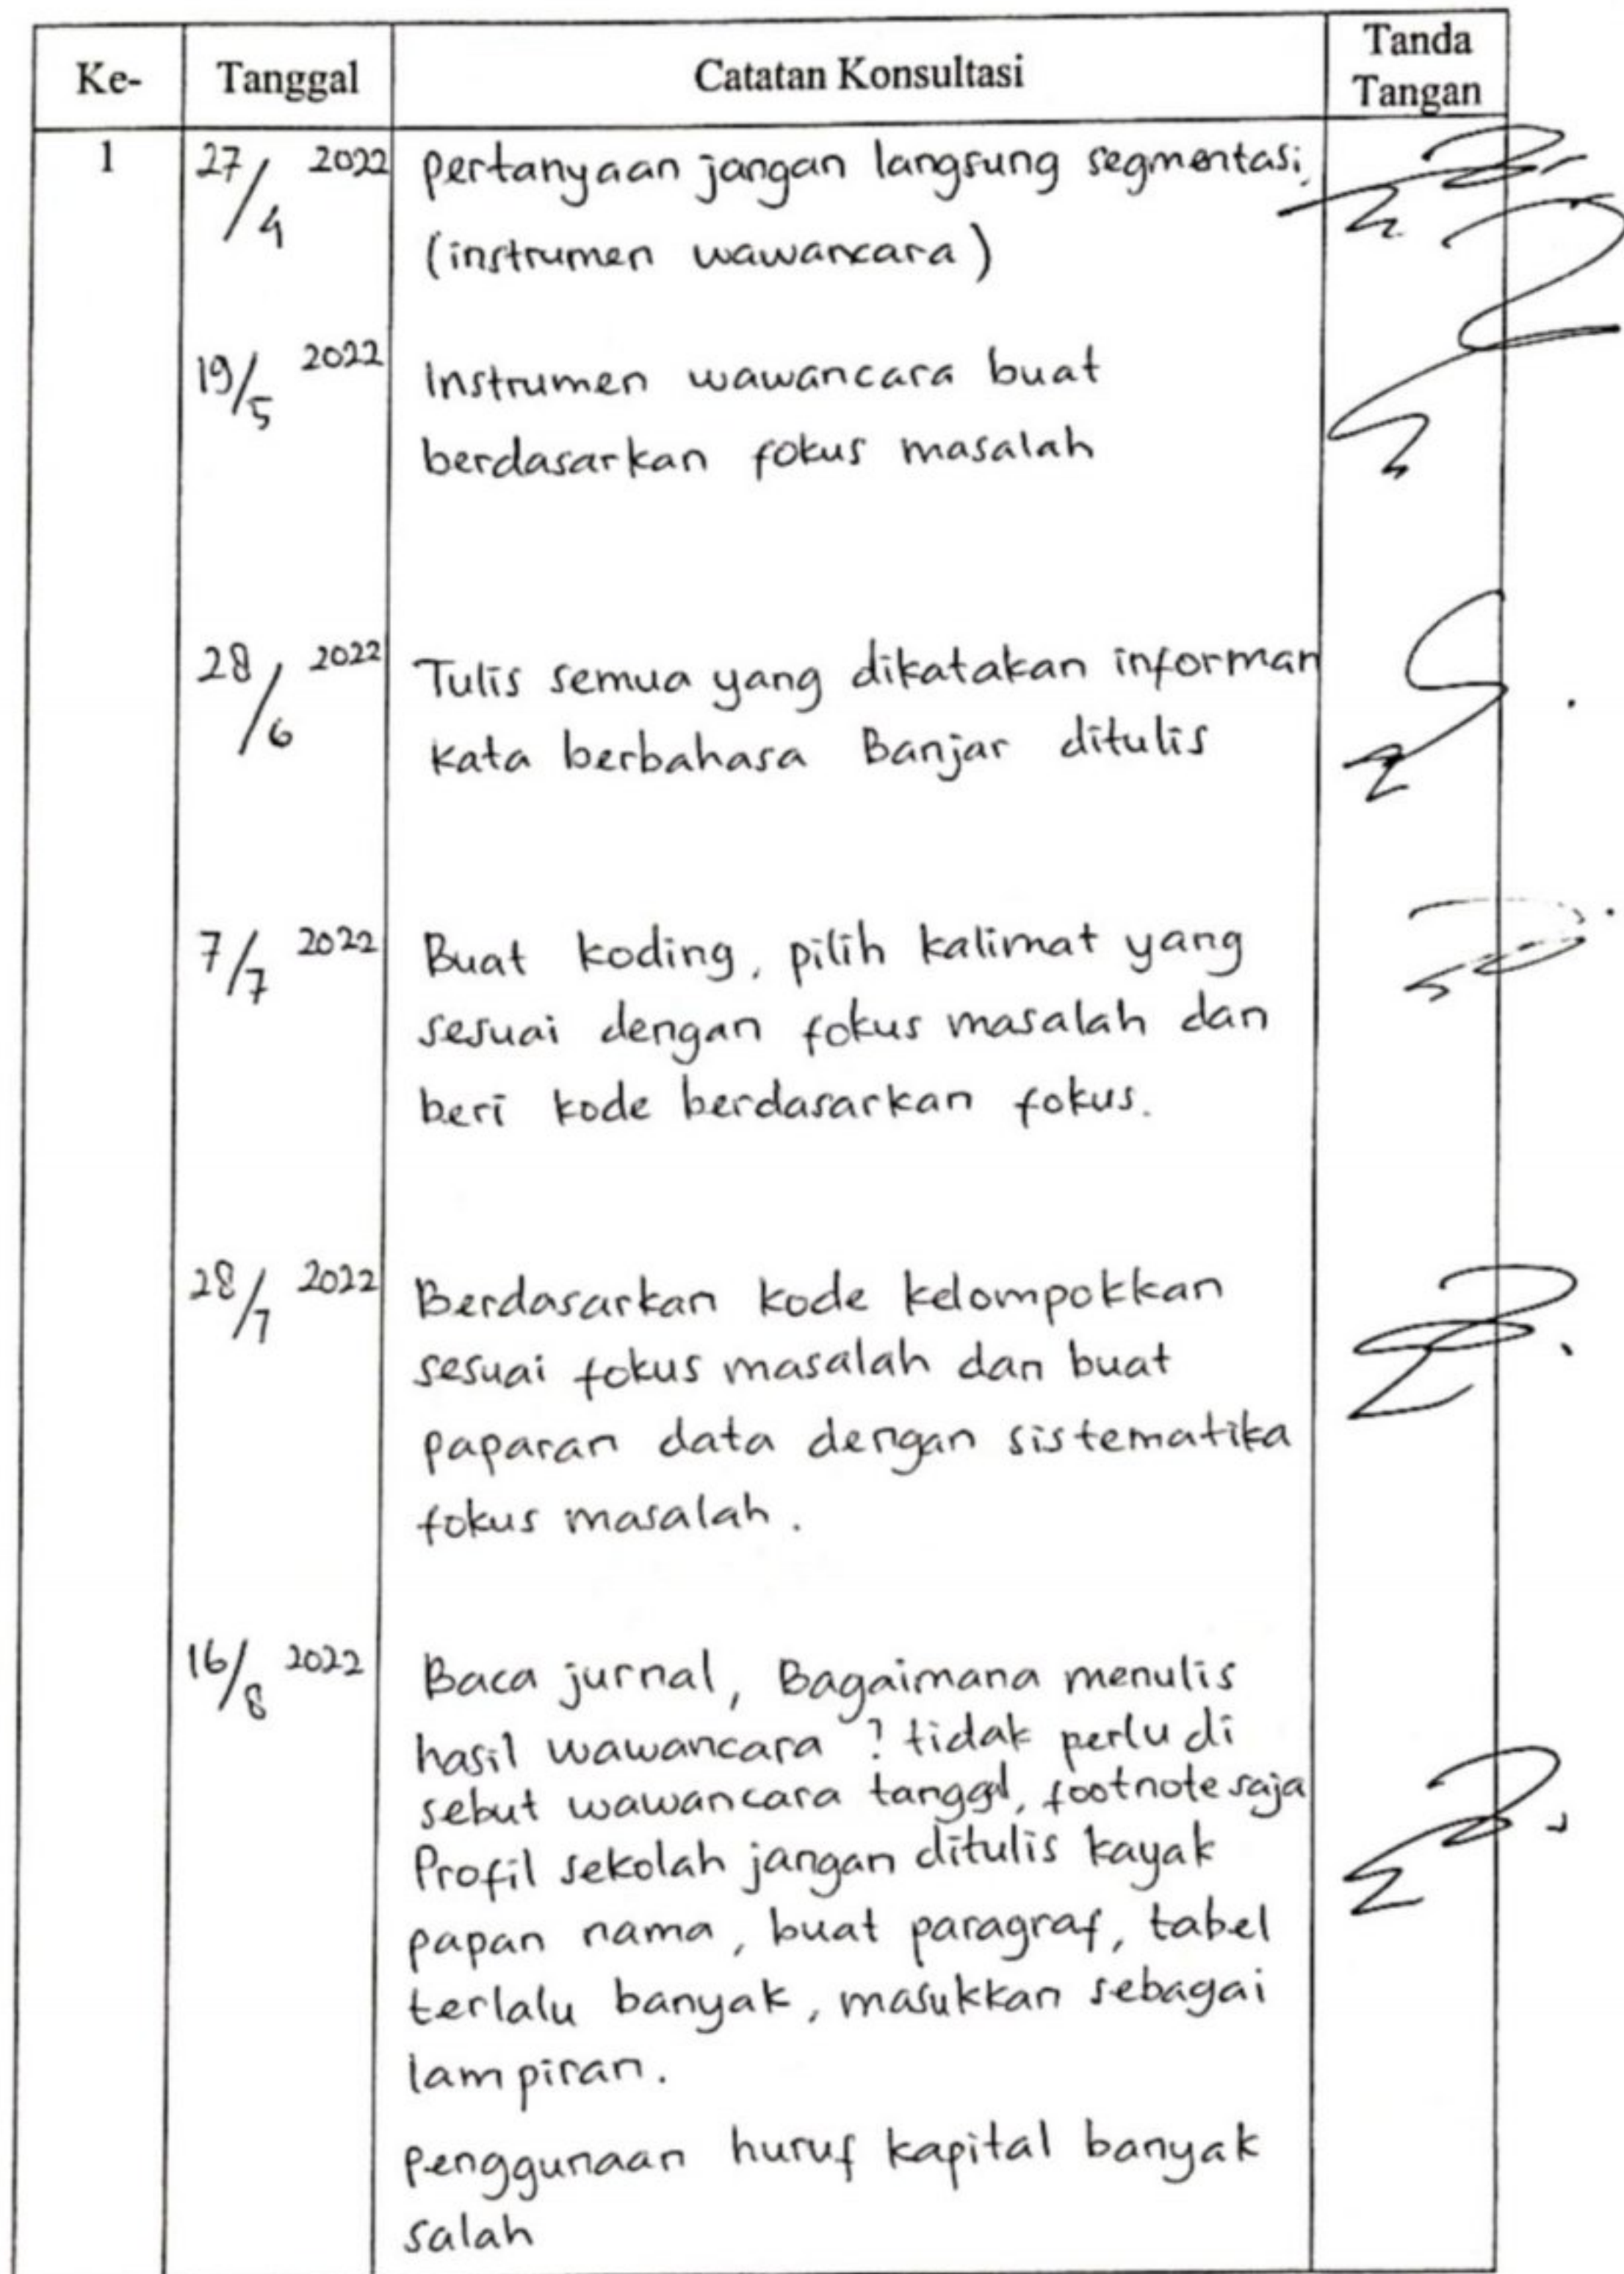 Ke- Tanggal Catatan Konsultasi Tanda Tangan
1 27/4 2022 pertanyaan jangan langsung segmentasi,
(instrumen wawancara)
19/5 2022 Instrumen wawancara buat
berdasarkan fokus masalah
28/6 2022 Tulis semua yang dikatakan informan
kata berbahasa Banjar ditulis
7/7 2022 Buat koding, pilih kalimat yang
sesuai dengan fokus masalah dan
beri kode berdasarkan fokus.
28/7 2022 Berdasarkan kode kelompokkan
sesuai fokus masalah dan buat
paparan data dengan sistematika
fokus masalah.
16/8 2022 Baca jurnal, Bagaimana menulis
hasil wawancara? tidak perlu di
sebut wawancara tanggal, footnote saja
Profil sekolah jangan ditulis kayak
papan nama, buat paragraf, tabel
terlalu banyak, masukkan sebagai
lampiran.
penggunaan huruf kapital banyak
salah